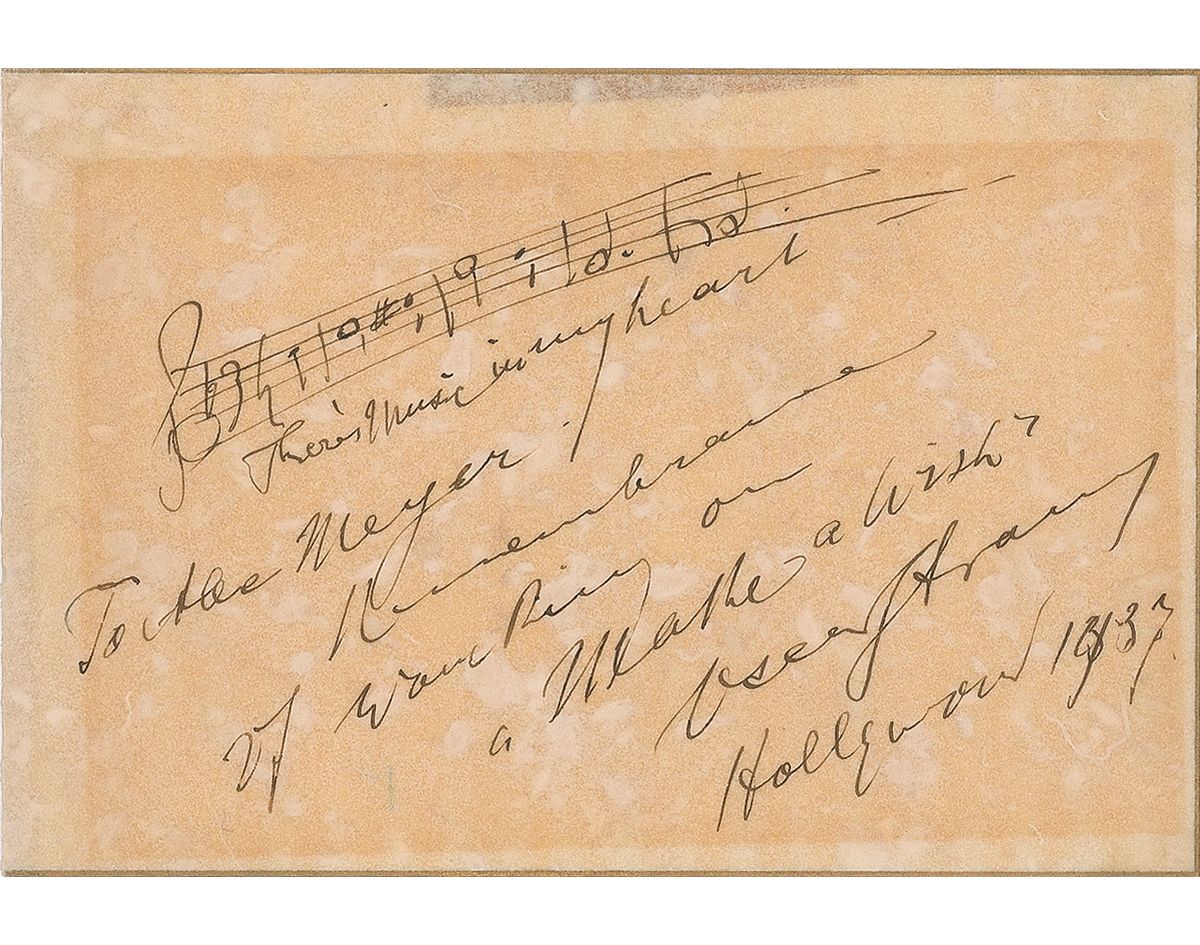 There's Music in my heart
To Abe Meyer.
Remembrance
of working on
a "Make a Wish"
Oscar Straus
Hollywood 1937